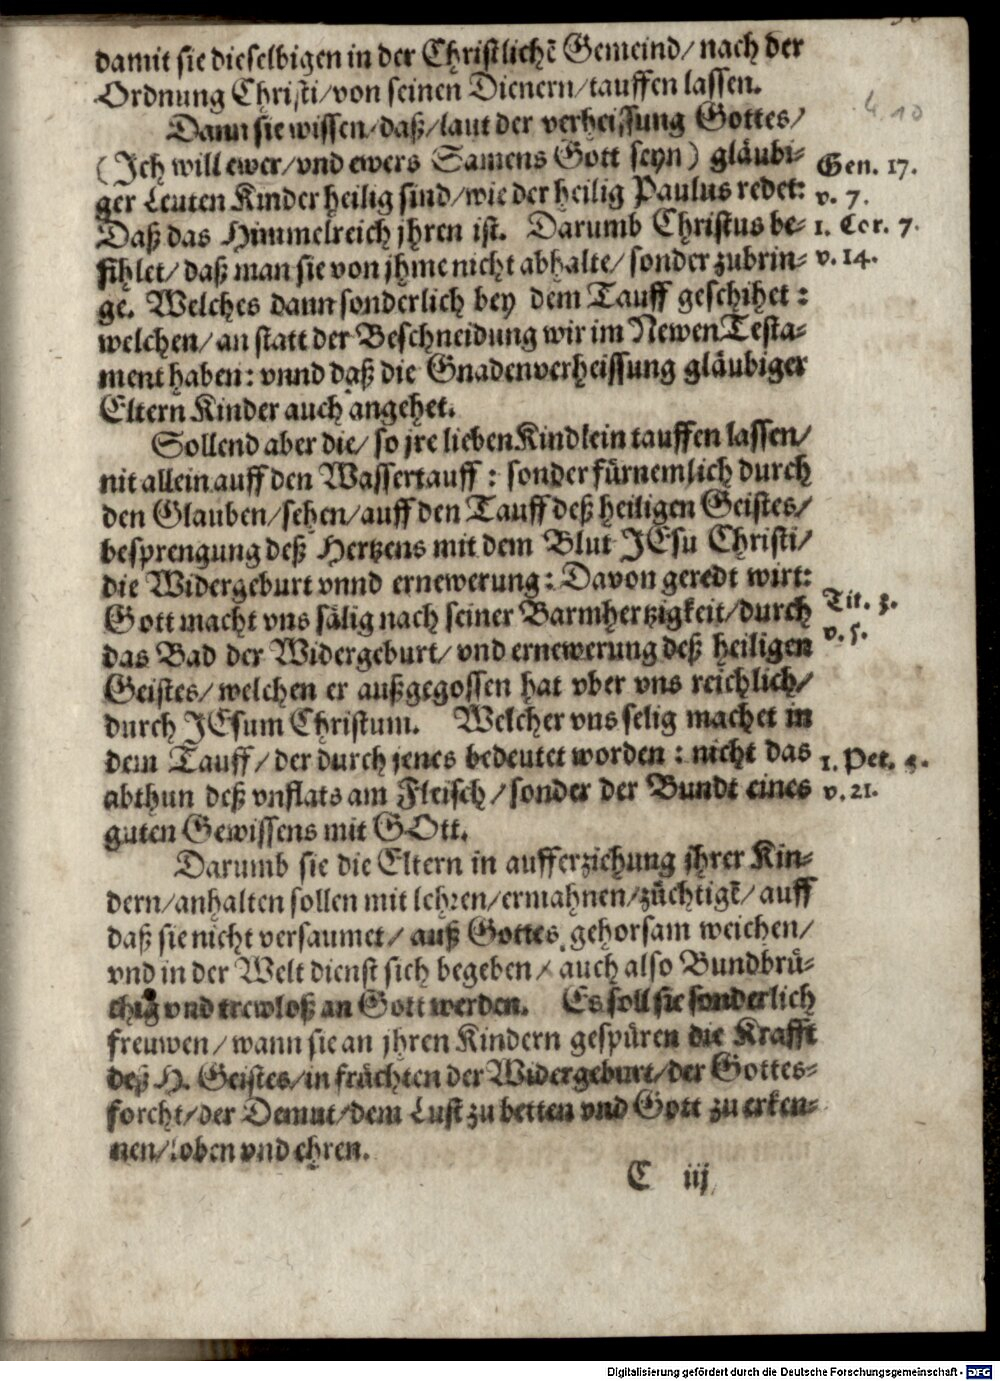 damit sie dieselbigen in der Christlichē Gemeind/ nach der
Ordnung Christi/ von seinen Dienern/ tauffen lassen.
4. 10
Dann sie wissen/ daß/ laut der verheissung Gottes/
(Ich will ewer/ vnd ewers Samens Gott seyn) gläubi-
Gen. 17.
ger Leuten Kinder heilig sind/ wie der heilig Paulus redet:
v. 7.
Daß das Himmelreich jhren ist. Darumb Christus be-
1. Cor. 7.
fihlet/ daß man sie von jhme nicht abhalte/ sonder zubrin-
v. 14.
ge. Welches dann sonderlich bey dem Tauff geschihet:
welchen/ an statt der Beschneidung wir im Newen Testa-
ment haben: vnnd daß die Gnadenverheissung gläubiger
Eltern Kinder auch angehet.
Sollend aber die/ so jre lieben Kindlein tauffen lassen/
nit allein auff den Wassertauff: sonder fürnemlich durch
den Glauben/ sehen/ auff den Tauff deß heiligen Geistes/
besprengung deß Hertzens mit dem Blut JEsu Christi/
die Widergeburt vnnd ernewerung: Davon geredt wirt:
Gott macht vns sälig nach seiner Barmhertzigkeit/ durch
Tit. 3.
das Bad der Widergeburt/ vnd ernewerung deß heiligen
v. 5.
Geistes/ welchen er außgegossen hat vber vns reichlich/
durch JEsum Christum. Welcher vns selig machet in
dem Tauff/ der durch jenes bedeutet worden: nicht das
1. Pet. 3.
abthun deß vnflats am Fleisch/ sonder der Bundt eines
v. 21.
guten Gewissens mit GOtt.
Darumb sie die Eltern in aufferziehung jhrer Kin-
dern/ anhalten sollen mit lehren/ ermahnen/ züchtigē/ auff
daß sie nicht versaumet/ auß Gottes gehorsam weichen/
vnd in der Welt dienst sich begeben/ auch also Bundbrü-
chig vnd trewloß an Gott werden. Es soll sie sonderlich
freuwen/ wann sie an jhren Kindern gespüren die Krafft
deß H. Geistes/ in früchten der Widergeburt/ der Gottes-
forcht/ der Demut/ dem Lust zu betten vnd Gott zu erken-
nen/ loben vnd ehren.
C iij
Digitalisierung gefördert durch die Deutsche Forschungsgemeinschaft - DFG